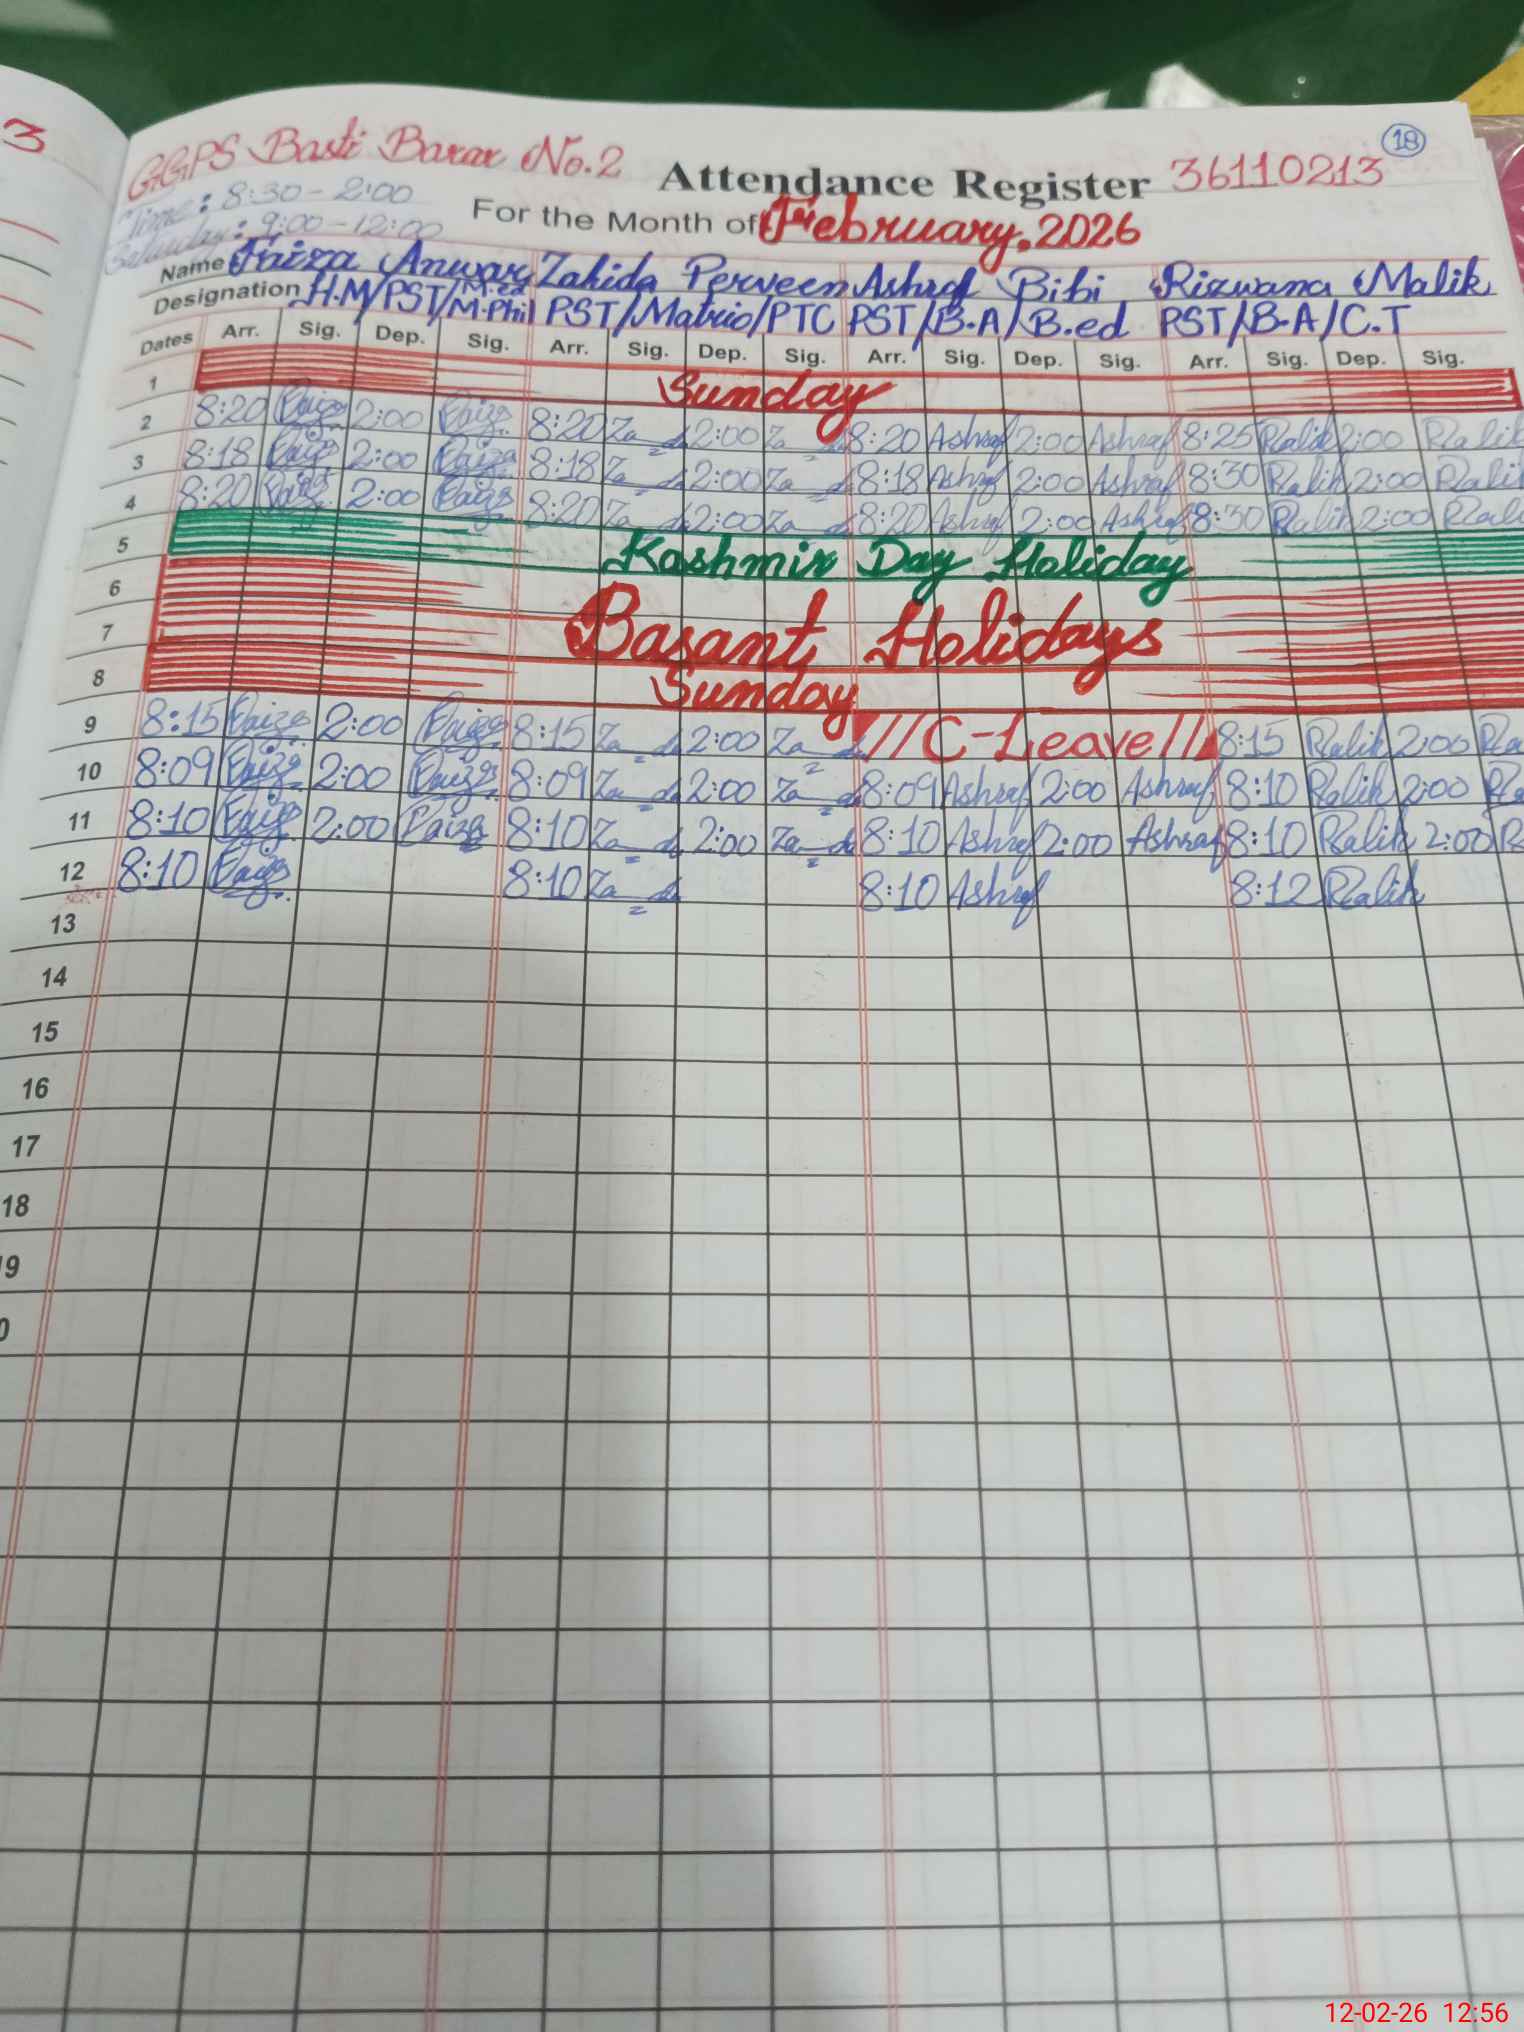 3
18
GGPS Basti Barar No.2 Attendance Register 36110213
Time: 8:30-2:00
For the Month of February, 2026
Saturday: 9:00-12:00
Name Faiza Anwar Zahida Perveen Ashraf Bibi Rizwana Malik
Designation H.M/PST/M.ed/M.Phil PST/Matric/PTC PST/B.A/B.ed PST/B.A/C.T
Dates Arr. Sig. Dep. Sig. Arr. Sig. Dep. Sig. Arr. Sig. Dep. Sig. Arr. Sig. Dep. Sig.
1 Sunday
2 8:20 Faiza 2:00 Faiza 8:20 Za 2:00 Za 8:20 Ashraf 2:00 Ashraf 8:25 Ralik 2:00 Ralik
3 8:18 Faiza 2:00 Faiza 8:18 Za 2:00 Za 8:18 Ashraf 2:00 Ashraf 8:30 Ralik 2:00 Ralik
4 8:20 Faiza 2:00 Faiza 8:20 Za 2:00 Za 8:20 Ashraf 2:00 Ashraf 8:30 Ralik 2:00 Rali
5 Kashmir Day Holiday
6
7 Basant Holidays
8 Sunday
9 8:15 Faiza 2:00 Faiza 8:15 Za 2:00 Za //C-Leave// 8:15 Ralik 2:00 Ra
10 8:09 Faiza 2:00 Faiza 8:09 Za 2:00 Za 8:09 Ashraf 2:00 Ashraf 8:10 Ralik 2:00 Ra
11 8:10 Faiza 2:00 Faiza 8:10 Za 2:00 Za 8:10 Ashraf 2:00 Ashraf 8:10 Ralik 2:00 R
12 8:10 Faiza 8:10 Za 8:10 Ashraf 8:12 Ralik
13
14
15
16
17
18
19
0
12-02-26 12:56